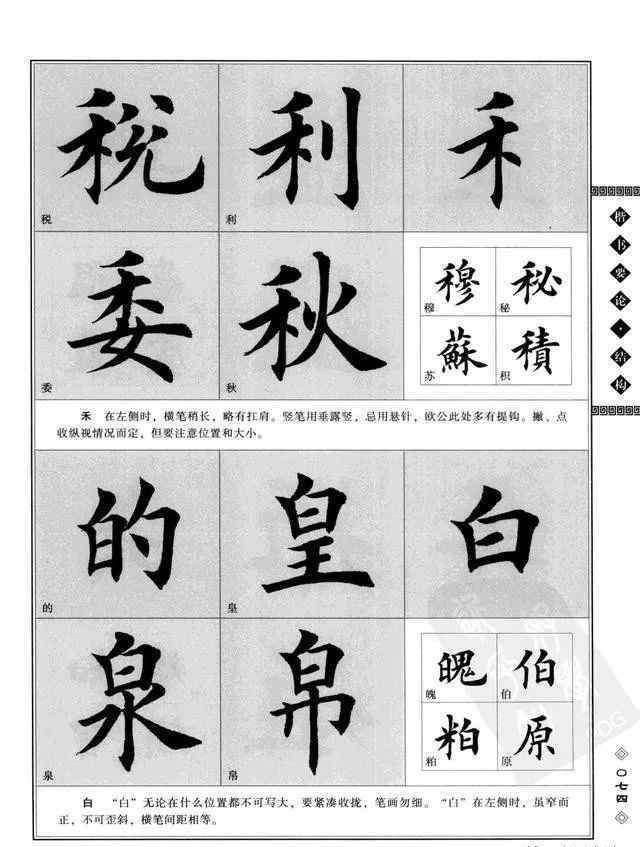 税 利 禾
税 利
委 秋
委 秋
穆 秘
穆 秘
蘇 積
苏 积
禾 在左侧时，横笔稍长，略有扛肩。竖笔用垂露竖，忌用悬针，欧公此处多有提钩。撇、点
收纵视情况而定，但要注意位置和大小。
的 皇 白
的 皇
泉 帛
泉 帛
魄 伯
魄 伯
粕 原
粕 原
白 “白”无论在什么位置都不可写大，要紧凑收拢，笔画勿细。“白”在左侧时，虽窄而
正，不可歪斜，横笔间距相等。
楷书要论·结构
〇七四